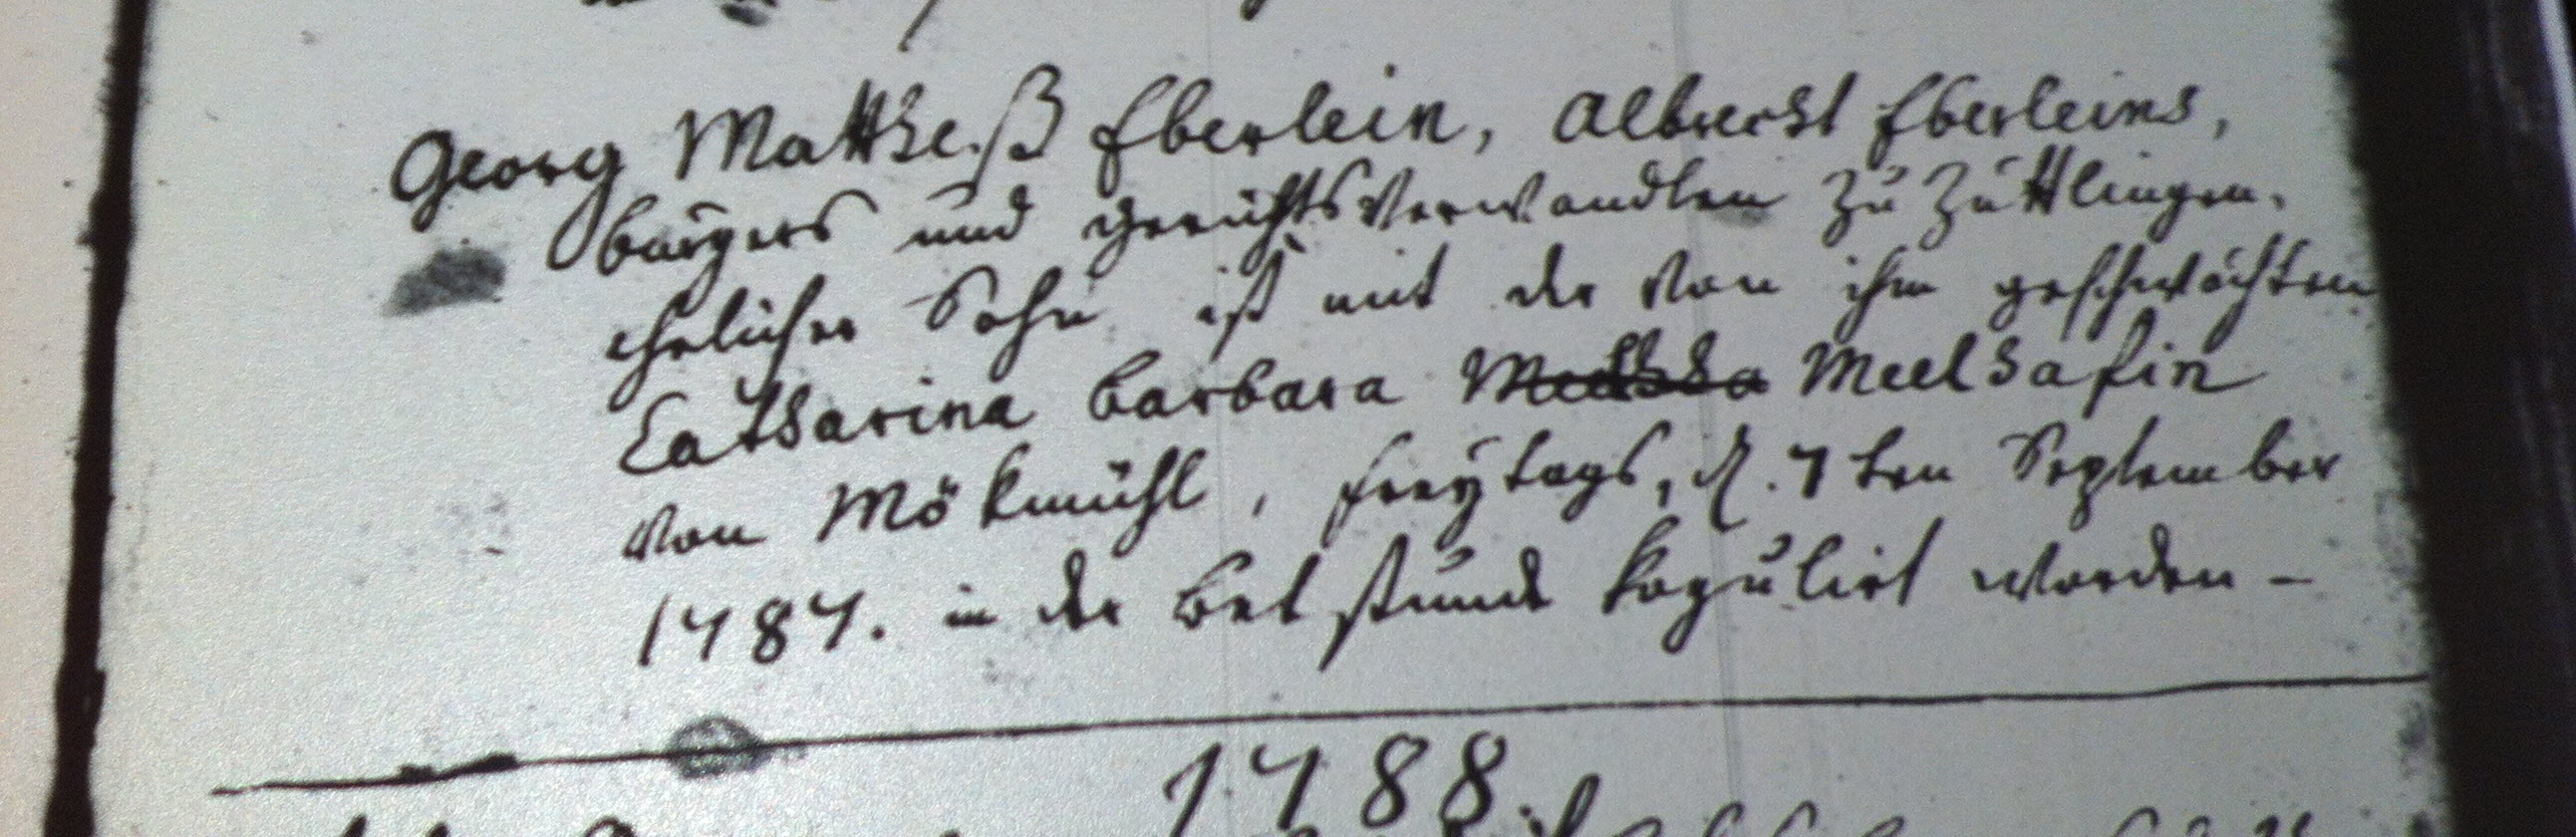 Georg Mattheiß Eberlein, Albrecht Eberleins,
burgers und gerichtsVerwandten zu Züttlingen,
ehelicher Sohn ist mit der von ihm geschwächten
Catharina Barbara Meelhafin
von Mökmühl, freytags, d. 7ten September
1787. in der Betstunde kopulirt worden –
1788.